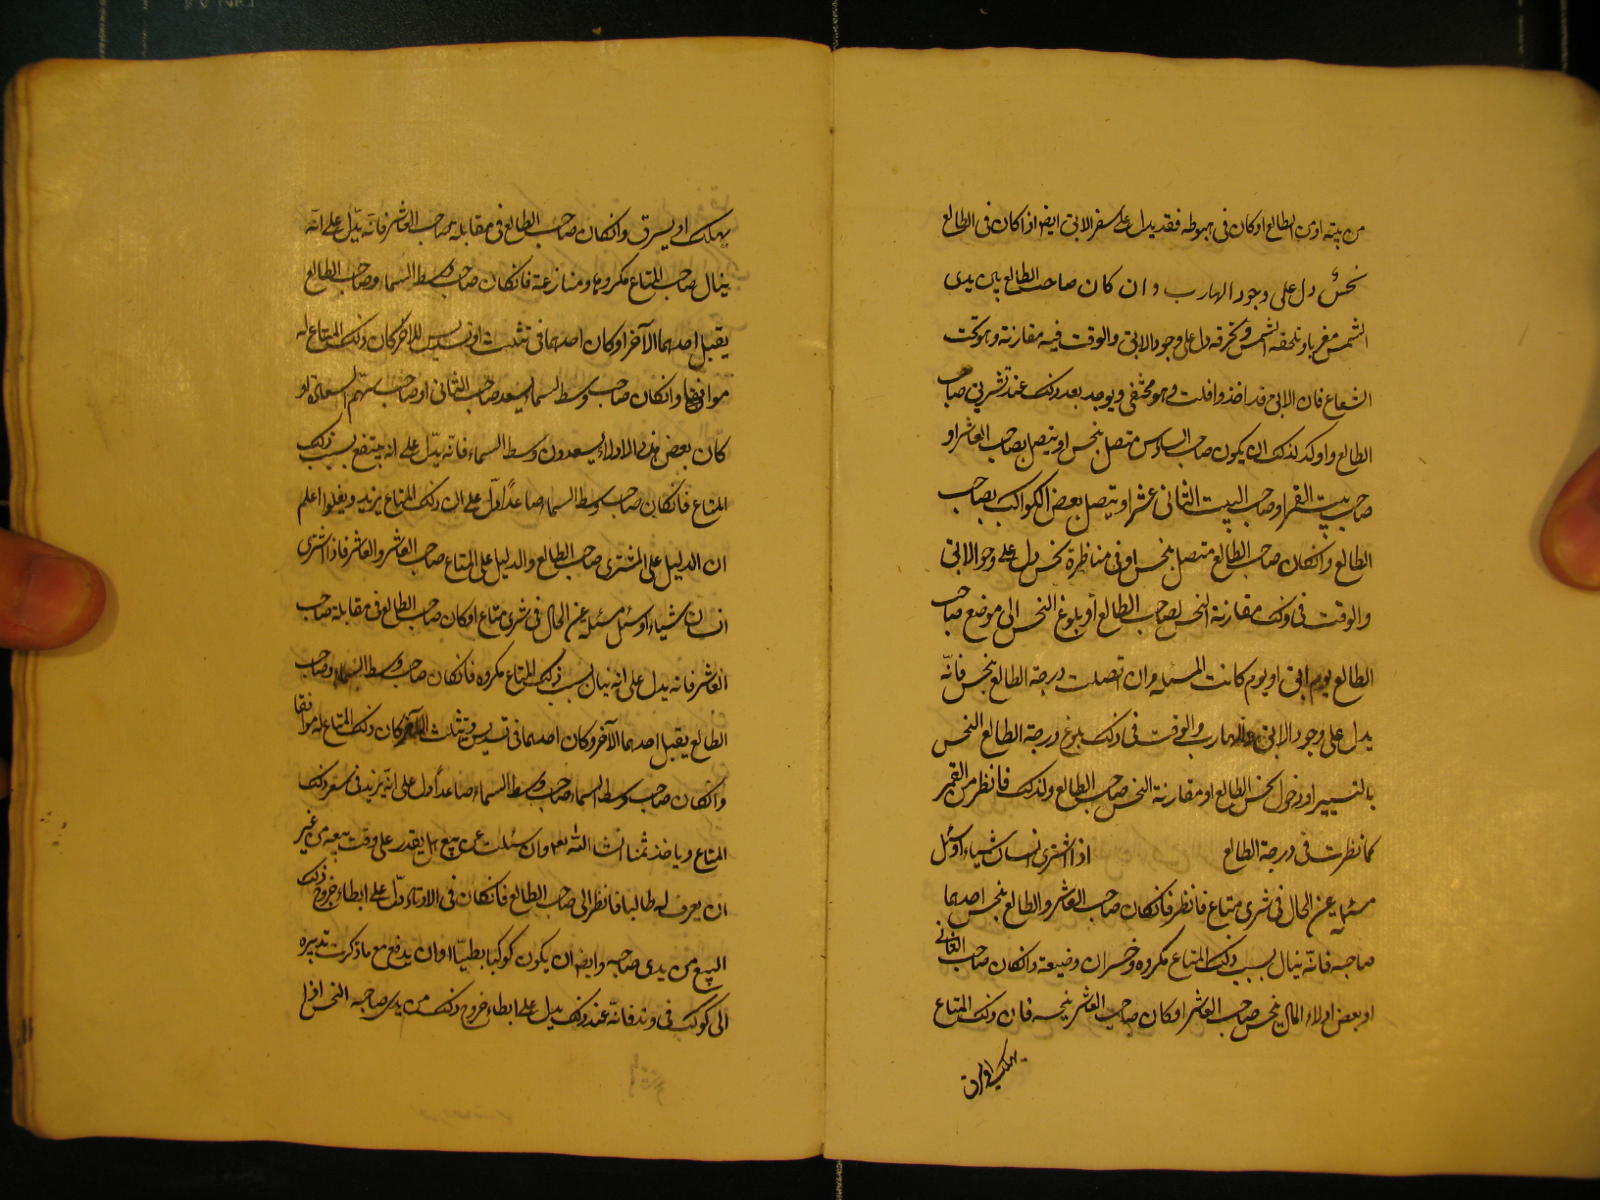 من بيته او من الطالع او كان فى هبوطه فقد يدل على سفر الابق ايضا اذا كان فى الطالع
نحس دل على وجود الهارب و ان كان صاحب الطالع بين يدى
الشمس مغربا وتلحقه الشمس وتحرقه دل على وجود الابق والوقت فيه مقارنة وهو تحت
الشعاع فان الابق قد اخذ وافلت وهو مختفى ويوجد بعد ذلك عند تشريق صاحب
الطالع واوكد لذلك ان يكون صاحب السادس متصل بنحس او يتصل بصاحب العاشر او
صاحب بيت القمر او صاحب البيت الثانى عشر او يتصل بعض الكواكب بصاحب
الطالع وانكان صاحب الطالع متصل بنحس او فى مناظرة نحس دل على وجود الابق
والوقت فى ذلك مقارنة النحس لصاحب الطالع أو بلوغ النحس الى موضع صاحب
الطالع يوم ابق او يوم كانت المسئله وان اتصلت درجة الطالع بنحس فانّه
يدل على وجود الابق والهارب والوقت فى ذلك بلوغ درجة الطالع النحس
بالتسيير او دخول نحس الطالع او مقارنة النحس صاحب الطالع ولذلك فانظر من القمر
كما نظرت فى درجة الطالع اذا اشترى انسان شياء او سئل
مسئلة عن الحال فى شرى متاع فانظر فانكان صاحب العاشر والطالع بنحس احدهما
صاحبه فانّه ينال بسبب ذلك المتاع مكروه وخسران وضيعة وانكان صاحب الثانى
او بعض اولاء المال ينحس صاحب العاشر او كان صاحب العاشر ينحسه فان ذلك المتاع
يهلك او يسرق
يهلك او يسرق وانكان صاحب الطالع فى مقابلة صاحب العاشر فانّه يدّل على انّه
ينال صاحب المتاع مكروها ومنازعة فانكان صاحب وسط السماء وصاحب الطالع
يقبل احدهما الآخر او كان احدهما فى تثليث او تسديس للاخر كان ذلك المتاع له
موافقا وانكان صاحب وسط السماء يسعد صاحب الثانى او صاحب سهم السعادة او
كان بعض هذه الاولاء يسعدون وسط السماء فانّه يدّل على انه ينتفع بسبب ذلك
المتاع فانكان صاحب وسط السماء صاعدًا دلّ على ان ذلك المتاع يزيد ويغلوا اعلم
ان الدليل على المشترى صاحب الطالع والدليل على المتاع صاحب العاشر والعاشر فاذا اشترى
انسان شياء او سئل مسئلة عن الحال فى شرى متاع او كان صاحب الطالع فى مقابلة صاحب
العاشر فانه يدل على انه ينال بسبب ذلك المتاع مكروه فانكان صاحب وسط السماء وصاحب
الطالع يقبل احدهما الآخر وكان احدهما فى تسديس وتثليث الآخر كان ذلك المتاع له موافقا
وانكان صاحب وسط السماء صاحب وسط السماء صاعداً دل على انّه يزيد فى سعر ذلك
المتاع وياخذ ثمنا انشا الله تعم وان سئلت عن بيع هل يقدر على وقت بيعه من غير
ان يعرف له طالبا فانظر الى صاحب الطالع فانكان فى الاوتاد دلّ على ابطاء خروج ذلك
البيع من يدى صاحبه وايضا ان يكون كوكبا بطيّا او ان يدفع مع ما ذكرت تدبيره
الى كوكب فى وتد فانّه عند ذلك يدل على ابطاء خروج ذلك من يدى صاحبه النحس اذا